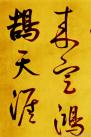 来空鴻
鵠天涯